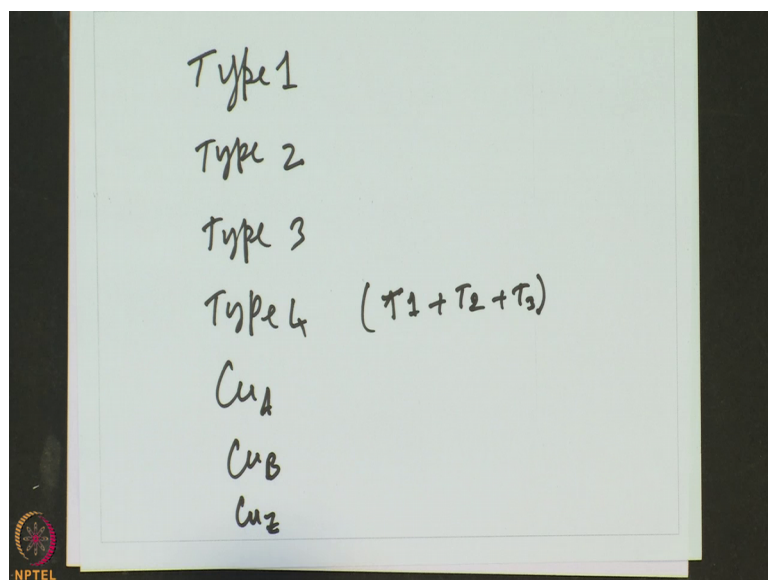 Type 1
Type 2
Type 3
Type 4 (T1 + T2 + T3)
CuA
CuB
CuZ
NPTEL